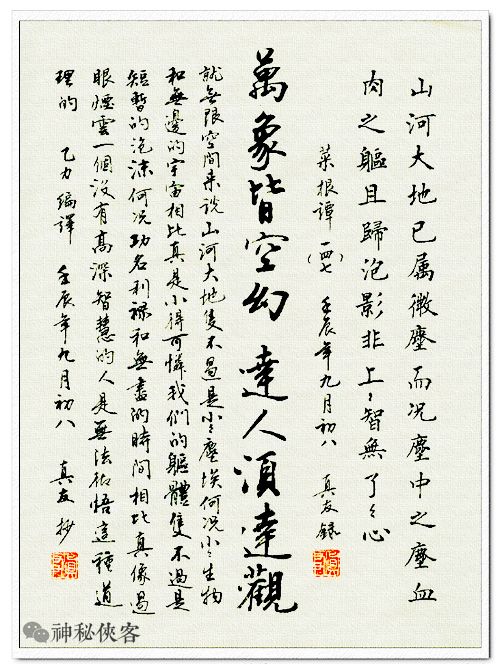 山河大地已属微塵而况塵中之塵血
肉之軀且歸泡影非上々智無了々心
菜根譚（一四七） 壬辰年九月初八 真友録
萬象皆空幻 達人須達觀
就無限空間来説山河大地隻不過是小々塵埃何况小々生物
和無邊的宇宙相比真是小得可憐我們的軀體隻不過是
短暫的泡沫何况功名利禄和無盡的時間相比真像過
眼煙雲一個没有高深智慧的人是無法彻悟這種道
理的 乙力编譯 壬辰年九月初八 真友抄
神秘侠客